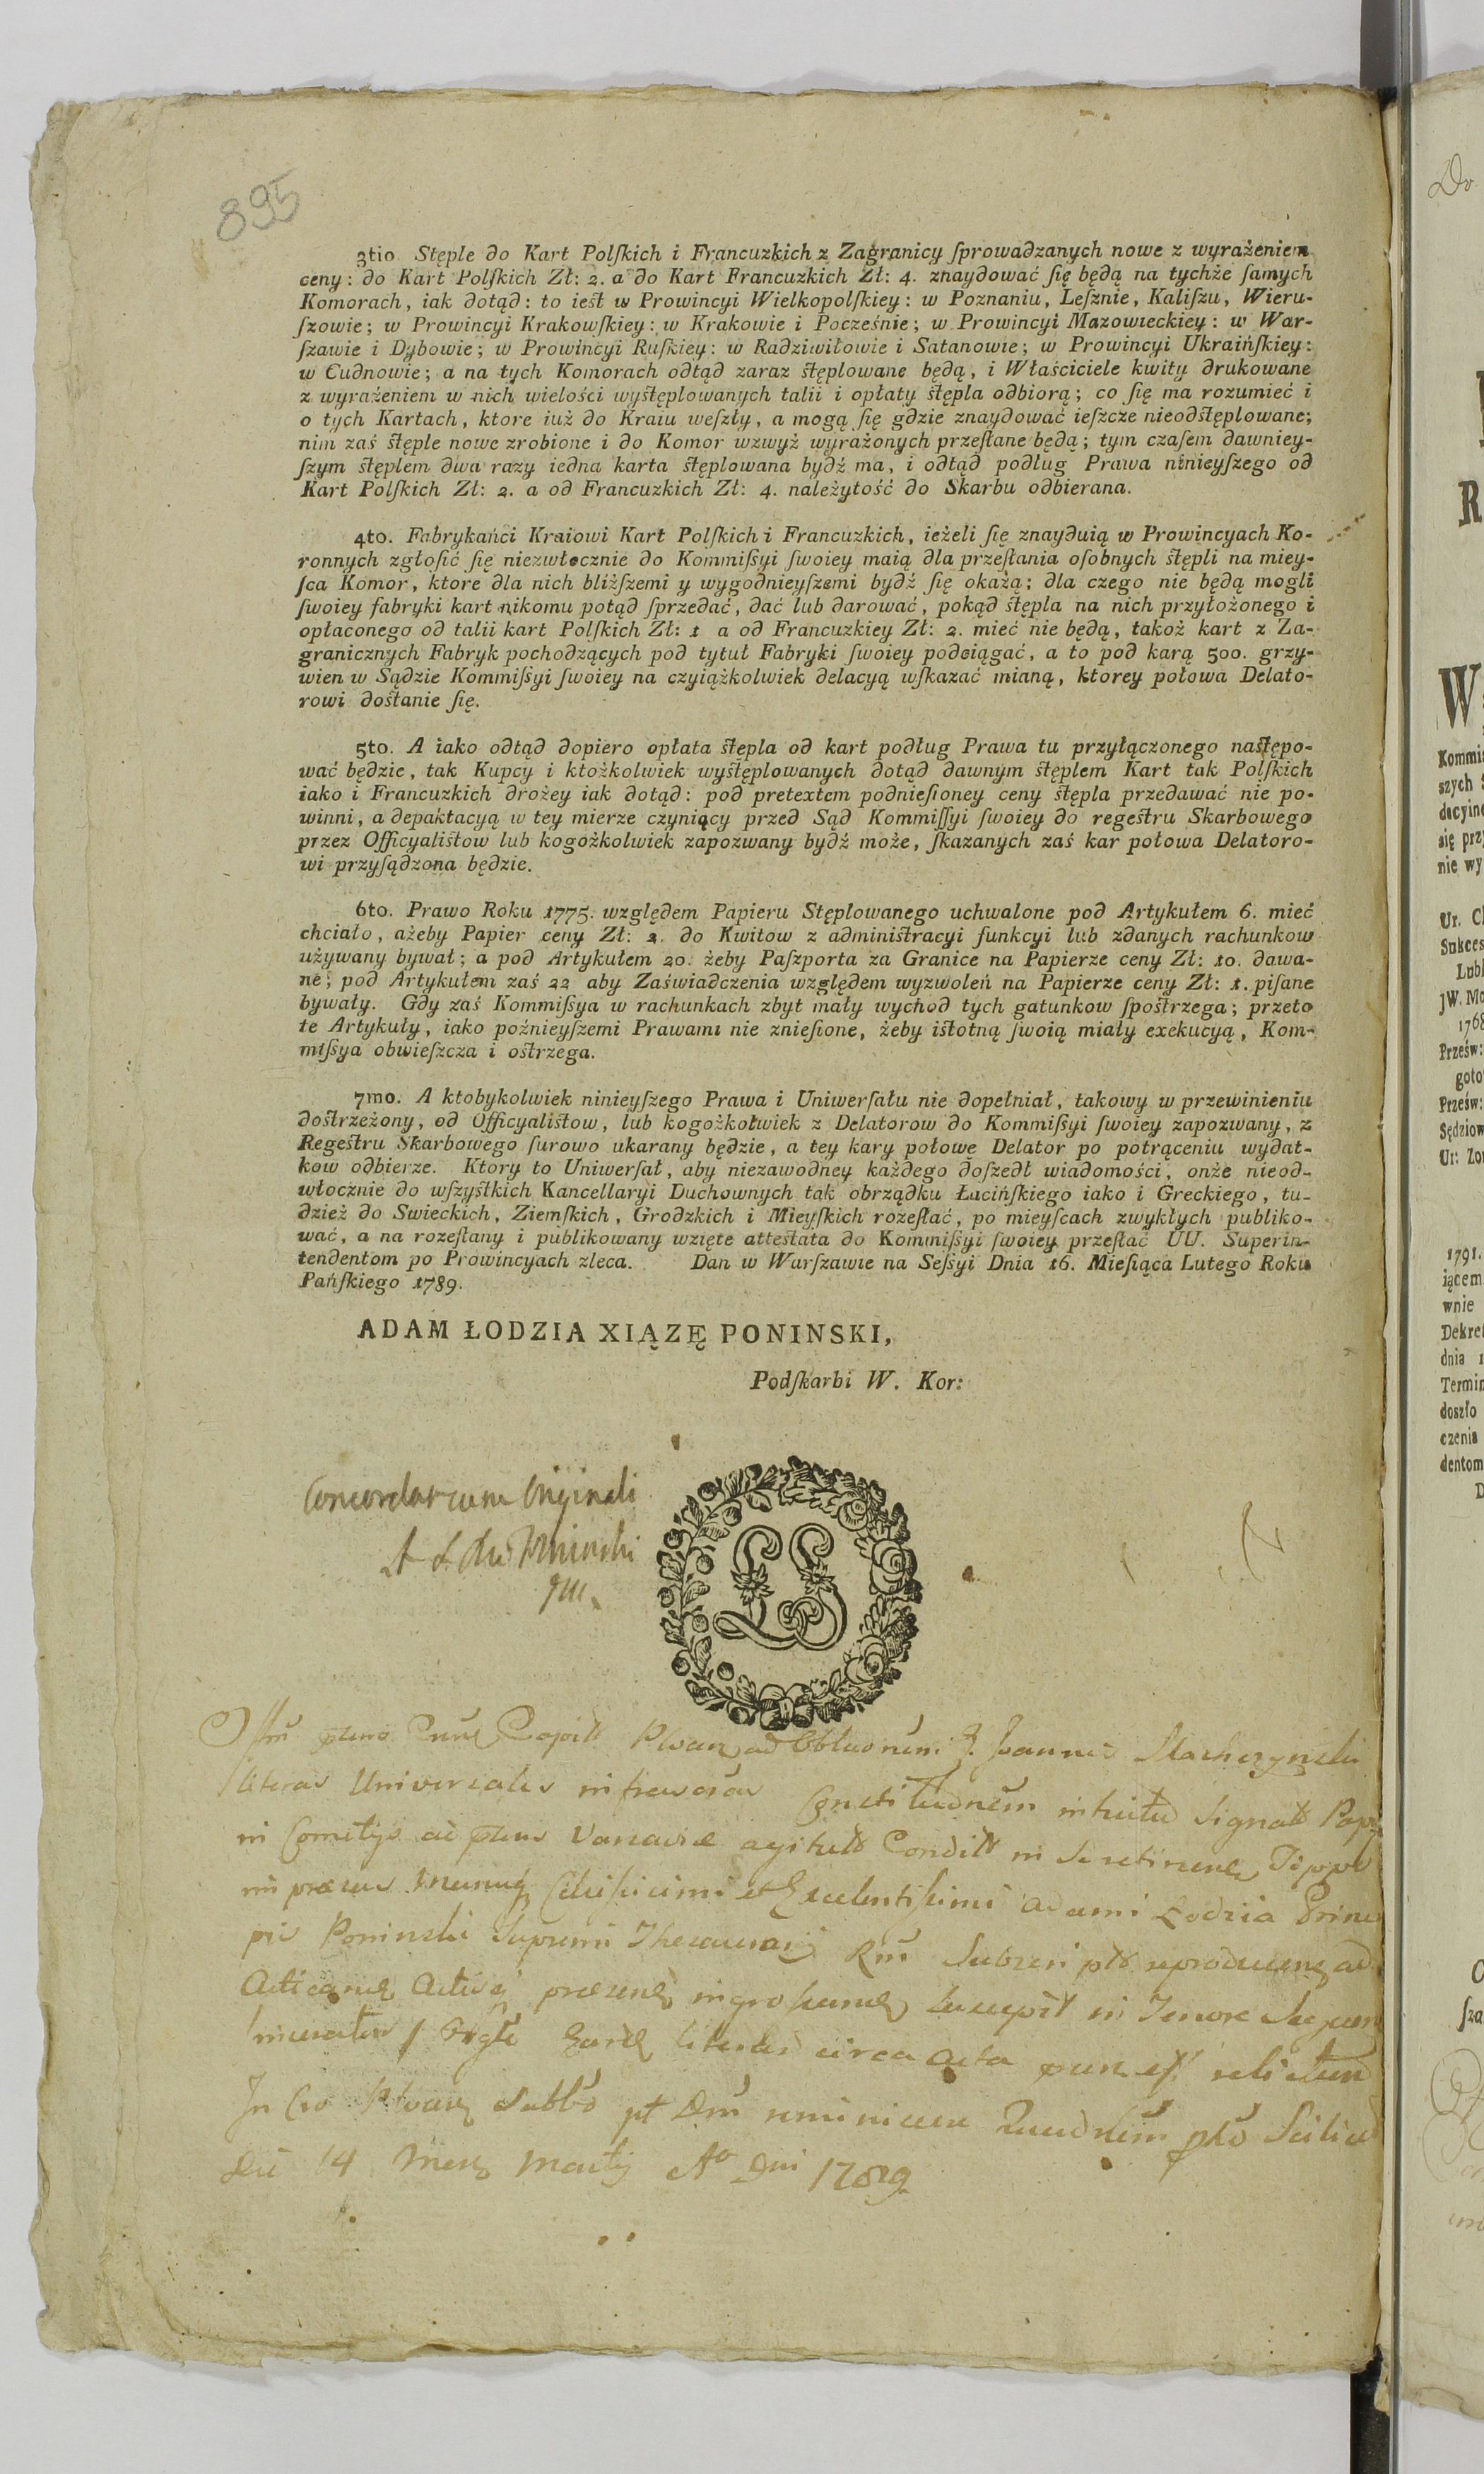 895
3tio Stęple do Kart Polſkich i Francuzkich z Zagranicy ſprowadzanych nowe z wyrażeniem
ceny: do Kart Polſkich Zł: 2. a do Kart Francuzkich Zł: 4. znaydować ſię będą na tychże ſamych
Komorach, iak dotąd: to ieſt w Prowincyi Wielkopolſkiey: w Poznaniu, Leſznie, Kaliſzu, Wieru-
ſzowie; w Prowincyi Krakowſkiey: w Krakowie i Pocześnie; w Prowincyi Mazowieckiey: w War-
ſzawie i Dybowie; w Prowincyi Ruſkiey: w Radziwiłowie i Satanowie; w Prowincyi Ukraińſkiey:
w Cudnowie; a na tych Komorach odtąd zaraz ſtęplowane będą, i Właściciele kwity drukowane
z wyrażeniem w nich wielości wyſtęplowanych talii i opłaty ſtępla odbiorą; co ſię ma rozumieć i
o tych Kartach, ktore iuż do Kraiu weſzły, a mogą ſię gdzie znaydować ieſzcze nieodſtęplowane;
nim zaś ſtęple nowe zrobione i do Komor wzwyż wyrażonych przeſłane będą; tym czaſem dawniey-
ſzym ſtęplem dwa razy iedna karta ſtęplowana bydź ma, i odtąd podług Prawa ninieyſzego od
Kart Polſkich Zł: 2. a od Francuzkich Zł: 4. należytość do Skarbu odbierana.
4to. Fabrykańci Kraiowi Kart Polſkich i Francuzkich, ieżeli ſię znayduią w Prowincyach Ko-
ronnych zgłoſić ſię niezwłocznie do Kommiſsyi ſwoiey maią dla przeſłania oſobnych ſtępli na miey-
ſca Komor, ktore dla nich bliżſzemi y wygodnieyſzemi bydź ſię okażą; dla czego nie będą mogli
ſwoiey fabryki kart nikomu potąd ſprzedać, dać lub darować, pokąd ſtępla na nich przyłożonego i
opłaconego od talii kart Polſkich Zł: 1 a od Francuzkiey Zł: 2. mieć nie będą, takoż kart z Za-
granicznych Fabryk pochodzących pod tytuł Fabryki ſwoiey podciągać, a to pod karą 500. grzy-
wien w Sądzie Kommiſsyi ſwoiey na czyiążkolwiek delacyą wſkazać mianą, ktorey połowa Delato-
rowi doſtanie ſię.
5to. A iako odtąd dopiero opłata ſtępla od kart podług Prawa tu przyłączonego naſtępo-
wać będzie, tak Kupcy i ktożkolwiek wyſtęplowanych dotąd dawnym ſtęplem Kart tak Polſkich
iako i Francuzkich drożey iak dotąd: pod pretextem podnieſioney ceny ſtępla przedawać nie po-
winni, a depaktacyą w tey mierze czyniący przed Sąd Kommiſſyi ſwoiey do regeſtru Skarbowego
przez Officyaliſtow lub kogożkolwiek zapozwany bydź może, ſkazanych zaś kar połowa Delatoro-
wi przyſądzona będzie.
6to. Prawo Roku 1775. względem Papieru Stęplowanego uchwalone pod Artykułem 6. mieć
chciało, ażeby Papier ceny Zł: 2. do Kwitow z adminiſtracyi funkcyi lub zdanych rachunkow
używany bywał; a pod Artykułem 20. żeby Paſzporta za Granice na Papierze ceny Zł: 10. dawa-
ne; pod Artykułem zaś 22 aby Zaświadczenia względem wyzwoleń na Papierze ceny Zł: 1. piſane
bywały. Gdy zaś Kommiſsya w rachunkach zbyt mały wychod tych gatunkow ſpoſtrzega; przeto
te Artykuły, iako poźnieyſzemi Prawami nie znieſione, żeby iſtotną ſwoią miały exekucyą, Kom-
miſsya obwieſzcza i oſtrzega.
7mo. A ktobykolwiek ninieyſzego Prawa i Uniwerſału nie dopełniał, takowy w przewinieniu
doſtrzeżony, od Officyaliſtow, lub kogożkolwiek z Delatorow do Kommiſsyi ſwoiey zapozwany, z
Regeſtru Skarbowego ſurowo ukarany będzie, a tey kary połowę Delator po potrąceniu wydat-
kow odbierze. Ktory to Uniwerſał, aby niezawodney każdego doſzedł wiadomości, onże nieod-
włocznie do wſzyſtkich Kancellaryi Duchownych tak obrządku Łacińſkiego iako i Greckiego, tu-
dzież do Swieckich, Ziemſkich, Grodzkich i Mieyſkich rozeſłać, po mieyſcach zwykłych publiko-
wać, a na rozeſłany i publikowany wzięte atteſtata do Kommiſsyi ſwoiey przeſłać UU. Superin-
tendentom po Prowincyach zleca. Dan w Warſzawie na Seſsyi Dnia 16. Mieſiąca Lutego Roku
Pańſkiego 1789.
ADAM ŁODZIA XIĄZĘ PONINSKI,
Podſkarbi W. Kor:
Concordat cum Originali
Poninski
LS
ad Joannes
literas Universales Signat
in Comitys Varsaviae
et Adami Łodzia Prin
Poninski Supremi
in Tenore
circa Acta
In
Die 14 Mens Martij Ao Dni 1789
Do
R
W
Kommis
szych
decyine
się prz
nie wy
Ur.
Sukces
Lubl
JW. Mo
1768
Prześw:
goto
Prześw:
Sędziow
Ur: Zo
1791.
iącem
wnie
Dekret
dnia 1
Termin
doszło
czenia
dentom